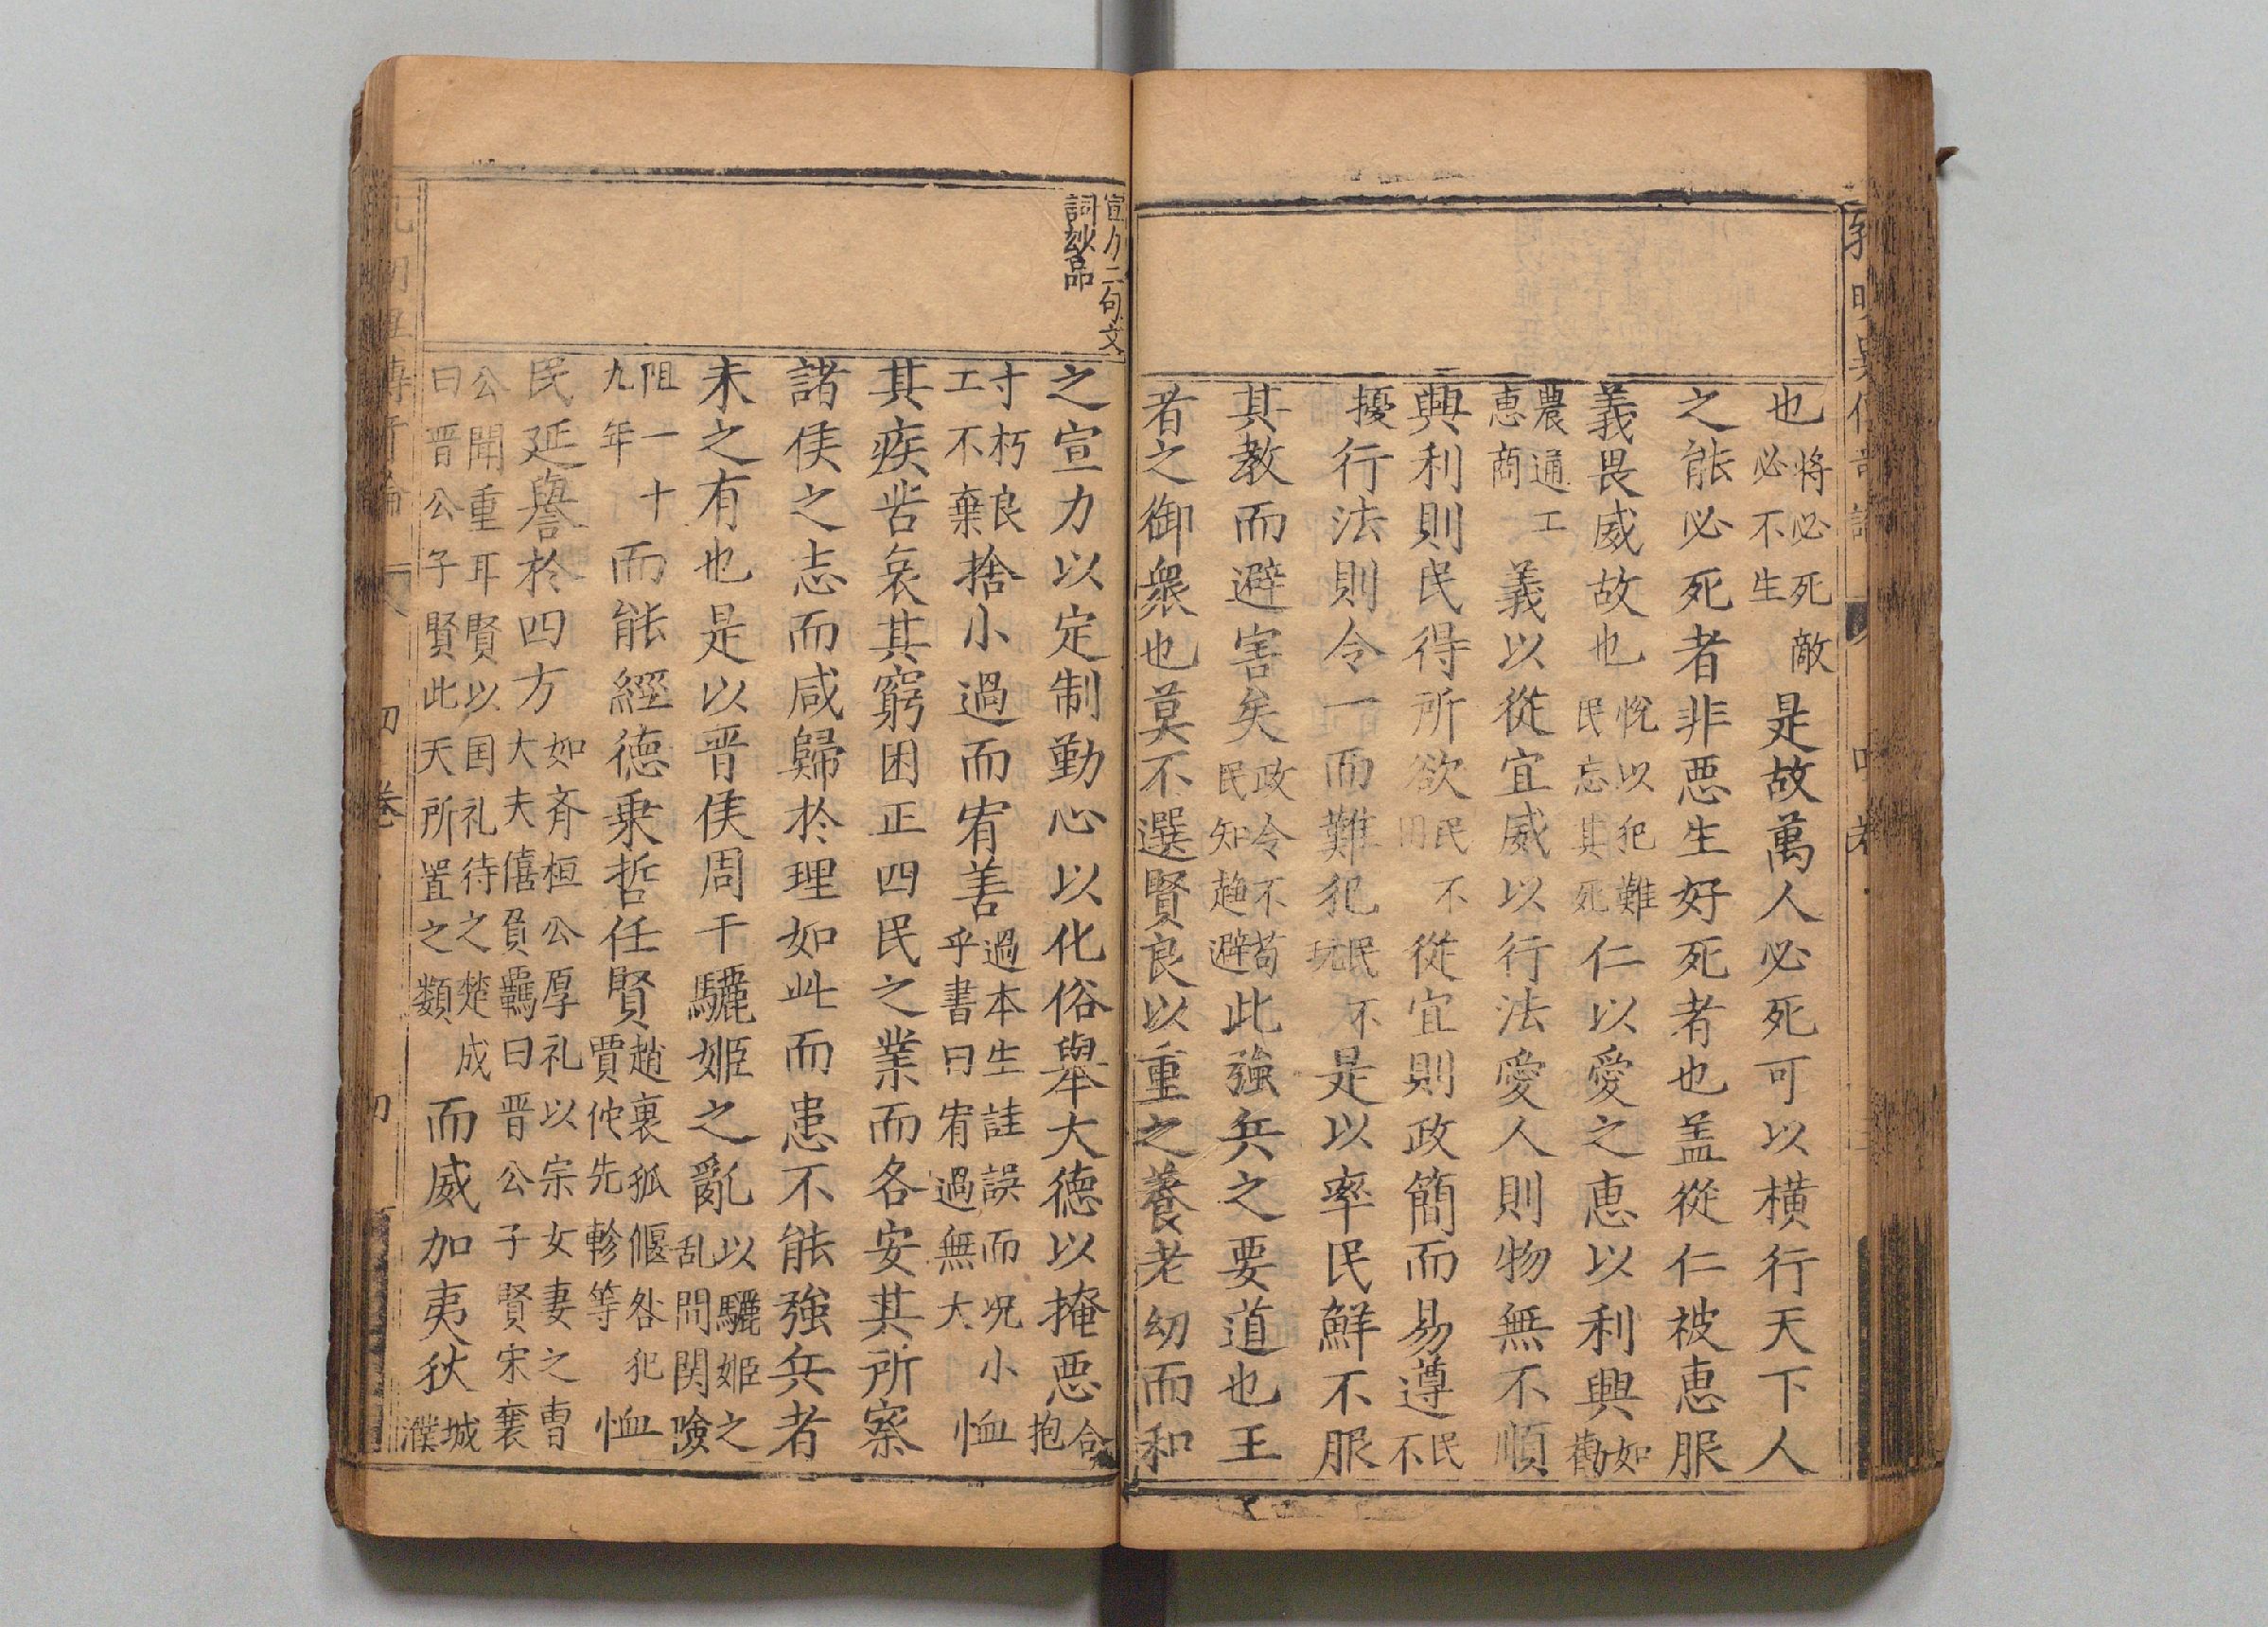 也將必死敵必不生是故萬人必死可以橫行天下人
之能必死者非惡生好死者也盖從仁被恵服
義畏威故也悅以犯難民忘其死仁以愛之恵以利興如勸
農通工恵商義以從宜威以行法愛人則物無不順
興利則民得所欲民不從宜則政簡而易遵民不
擾行法則令一而難犯民不玩是以率民鮮不服
其教而避害矣政令不苟民知趍避此強兵之要道也王
者之御衆也莫不選賢良以重之養老幼而和
宣力二句文
詞玅品
之宣力以定制勤心以化俗舉大德以掩惡合抱
寸朽良工不棄捨小過而宥善過本生註誤而况小乎書曰宥過無大恤
其疾苦哀其窮困正四民之業而各安其所察
諸侯之志而咸歸於理如此而患不能強兵者
未之有也是以晋侯周干驪姬之亂以驪姬之乱間関險
阻一十九年而能經德乗哲任賢趙衰狐偃咎犯賈佗先軫等恤
民延譽於四方如斉桓公厚礼以宗女妻之曹大夫僖負羈曰晋公子賢宋襄
公聞重耳賢以国礼待之楚成曰晋公子賢此天所置之類而威加夷狄城濮